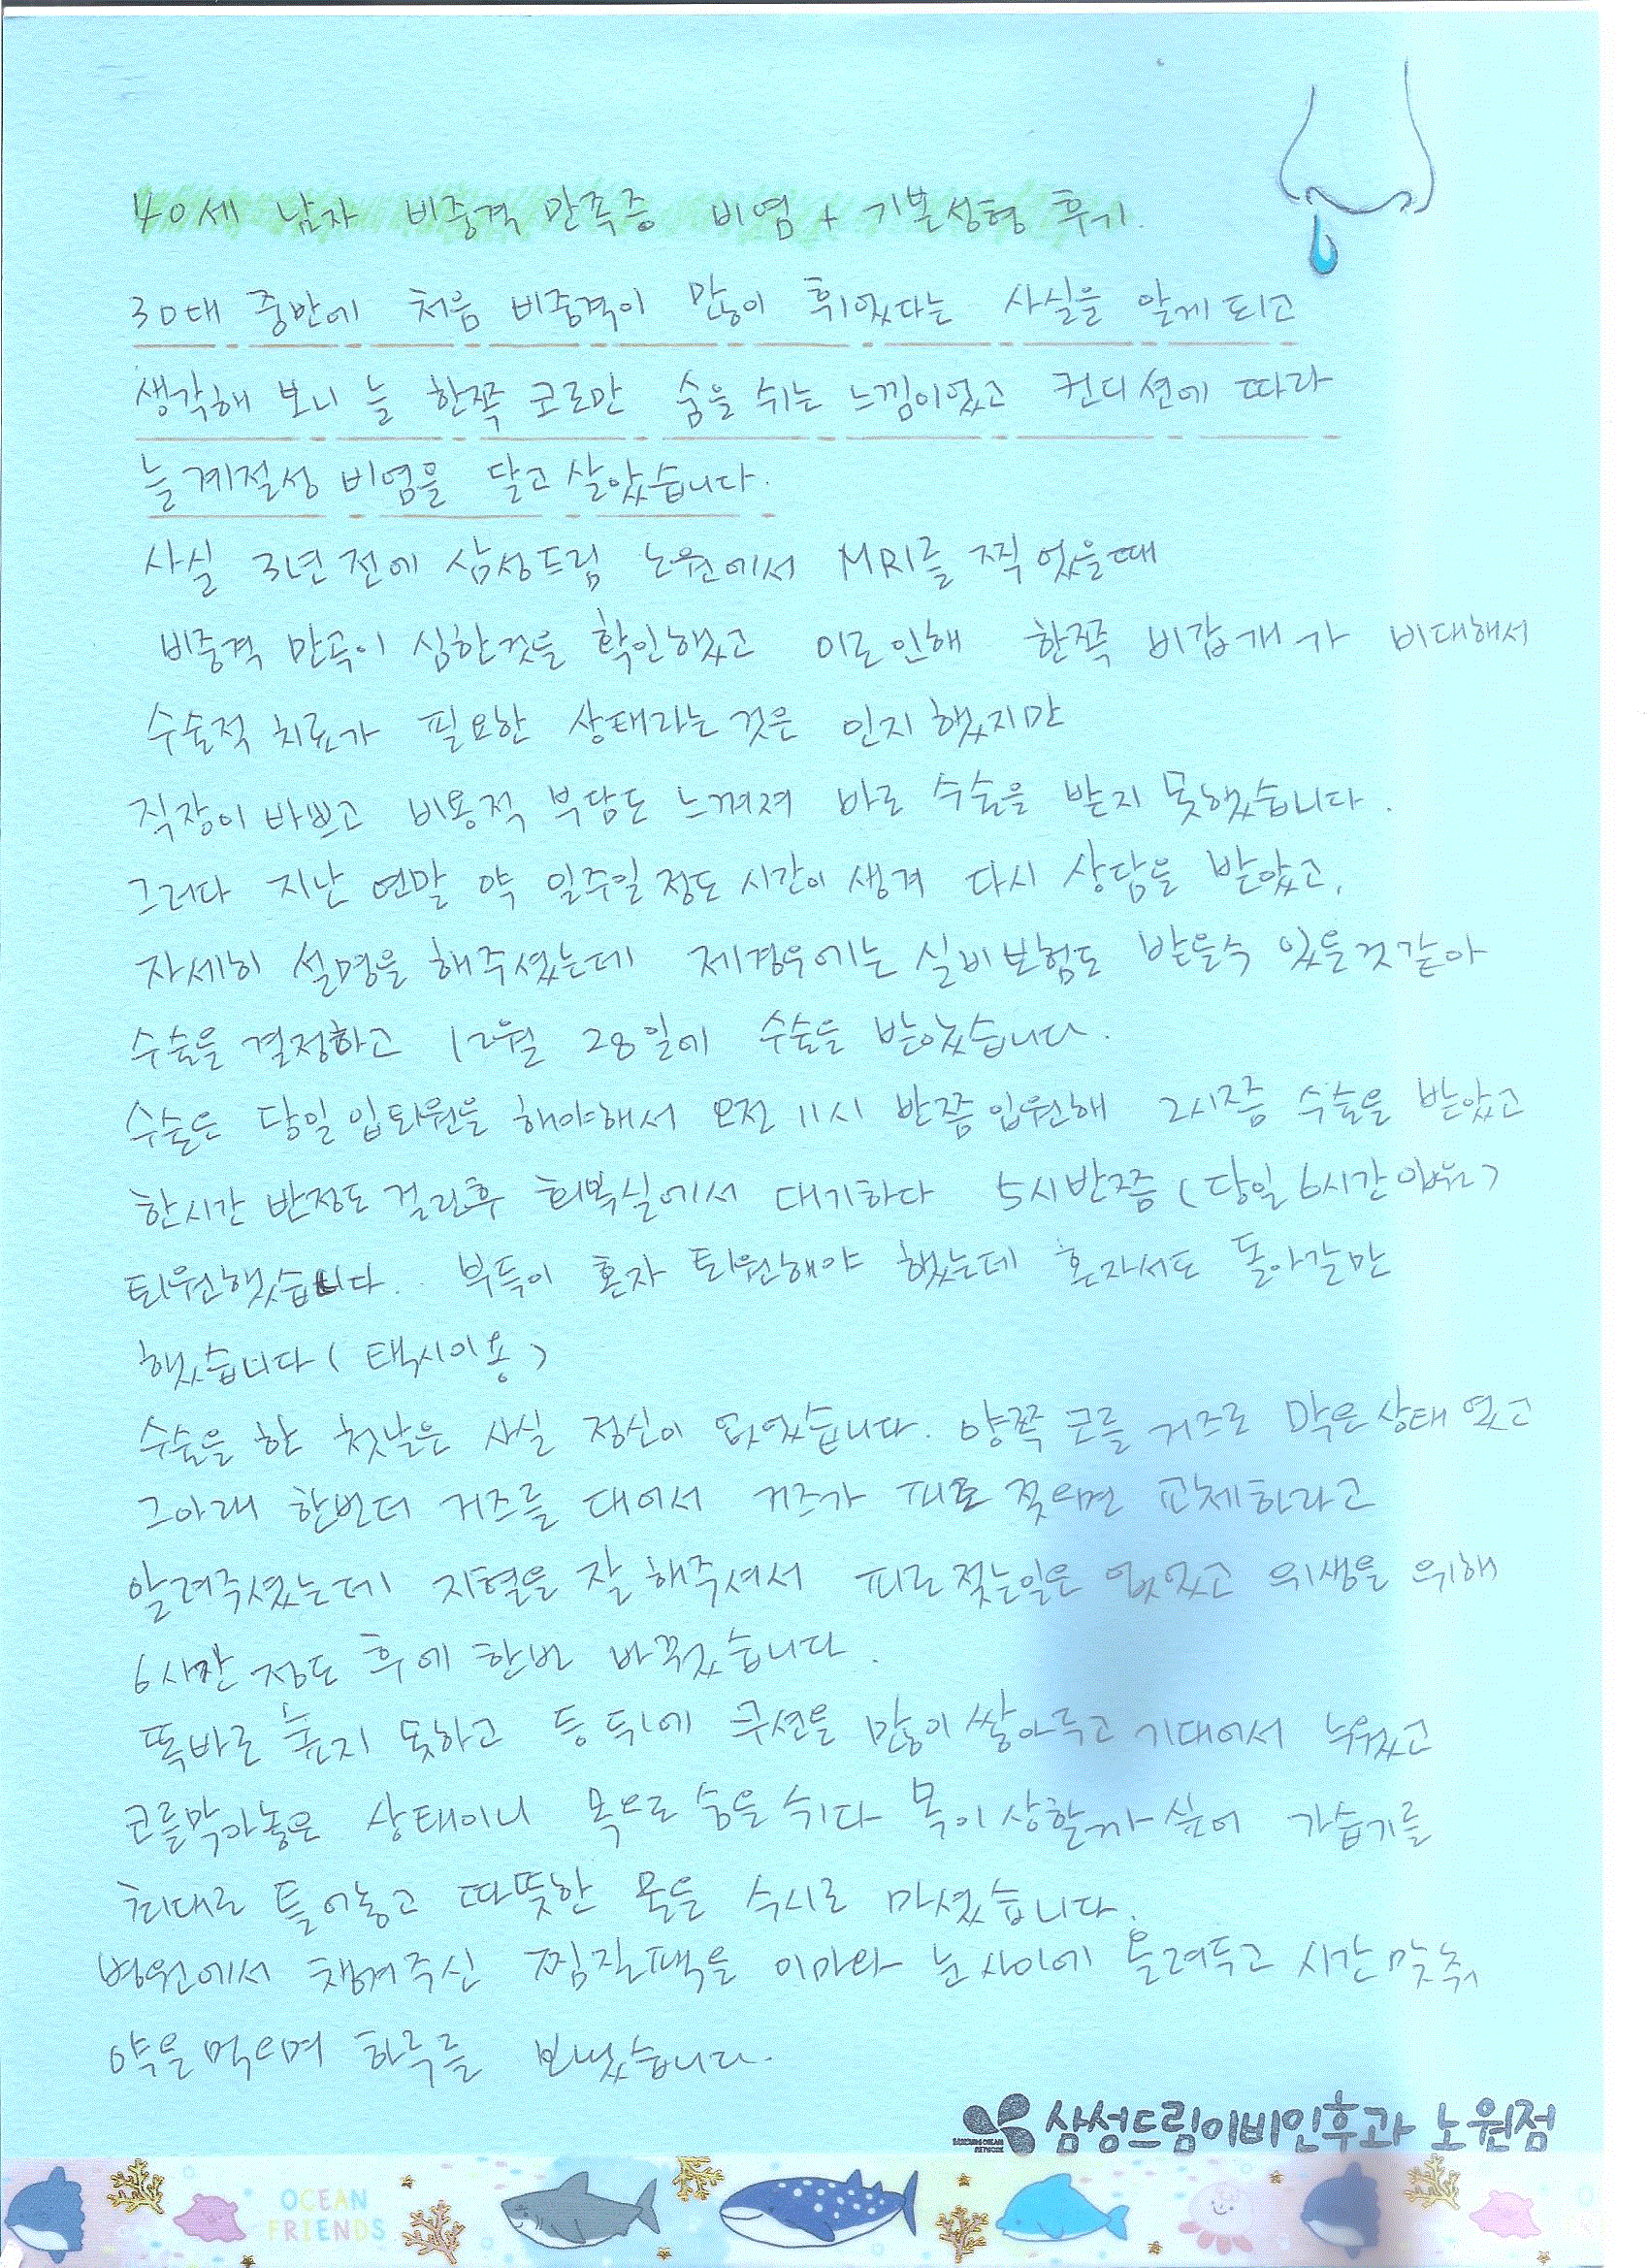 40세 남자 비중격 만곡증 비염 + 기본성형 후기.
30대 중반에 처음 비중격이 많이 휘었다는 사실을 알게되고
생각해 보니 늘 한쪽 코로만 숨을 쉬는 느낌이었고 컨디션에 따라
늘 계절성 비염을 달고 살았습니다.
사실 3년 전에 삼성드림 노원에서 MRI를 찍었을때
비중격 만곡이 심한것을 확인했고 이로인해 한쪽 비갑개가 비대해서
수술적 치료가 필요한 상태라는 것은 인지했지만
직장이 바쁘고 비용적 부담도 느껴져 바로 수술을 받지 못했습니다.
그러다 지난 연말 약 일주일 정도 시간이 생겨 다시 상담을 받았고,
자세히 설명을 해주셨는데 제경우에는 실비보험도 받을수 있을것같아
수술을 결정하고 12월 28일에 수술을 받았습니다.
수술은 당일 입퇴원을 해야해서 오전 11시 반쯤 입원해 2시쯤 수술을 받았고
한시간 반정도 걸린후 회복실에서 대기하다 5시반쯤 (당일 6시간 입원)
퇴원했습니다. 부득이 혼자 퇴원해야 했는데 혼자서도 돌아갈만
했습니다 (택시이용)
수술을 한 첫날은 사실 정신이 없었습니다. 양쪽 코를 거즈로 막은상태 였고
그아래 한번더 거즈를 대어서 거즈가 피로 젖으면 교체하라고
알려주셨는데 지혈을 잘 해주셔서 피로 젖는일은 없었고 위생을 위해
6시간 정도 후에 한번 바꿨습니다.
똑바로 눕지 못하고 등 뒤에 쿠션을 많이 쌓아두고 기대어서 누웠고
코를막아놓은 상태이니 목으로 숨을 쉬다 목이 상할까 싶어 가습기를
최대로 틀어놓고 따뜻한 물을 수시로 마셨습니다.
병원에서 챙겨주신 찜질팩을 이마와 눈 사이에 올려두고 시간 맞춰
약을 먹으며 하루를 보냈습니다.
삼성드림이비인후과 노원점
OCEAN
FRIENDS